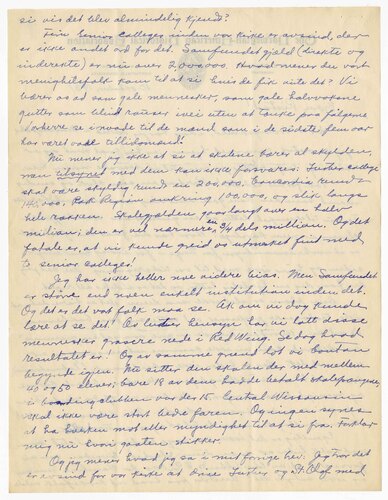 si vis det blev almindelig kjendt?
Fem Senior Colleges inden vor kirke er avsind, der
er ikke andet ord for det. Samfundet gjæld (direkte og
inderekte) er nu over 2,000,000. Hvad mener du vort
menighetsfolk kom til at si hvis de fik vite det? Vi
bærer os ad som gale mennesker, som gale halvvoksne
gutter som blind rauser ivei uten at tanke paa følgene
være se i naade til de mænd som i de sidste fem aar
har været vore tillidsmænd!
Nu mener jeg ikke at si at skolene bærer al skylden,
men tilsynet med dem kan ikke forsvares: Luther College
skal være skyldig rundt en 200,000. Concordia rundt
140,000. Park Region omkring 100,000, og slik langs
hele rækken. Skolegjælden goor langt over en halv
million; den er vel nærmere en 3/4 dels million. Og det
fatale er, at vi kunde greid os utmerket fint med
2 senior colleges!
Jeg har ikke heller noe videre bias. Men Samfundet
er større end noen enkelt institution inden det.
Og det er det vort folk maa se. Ak om vi dog kunde
lære at se det! Av hensyn har vi latt disse
mennesker grassere nede i Red Wing. Se dog hvad
resultatet er! Og av samme grund lot vi boutan
begynde igjen. Nu sitter den skolen der med mellem
40 og 50 elever; bare 18 av dem hadde betalt skolepengene,
i boardingklubben vor de 15. Central Wisconsin
skal ikke være stort bedre faren. Og ingen synes
at ha hverken mot eller myndighet til at si fra. Forklar
mig nu hvori gaaten stikker.
Og jeg mener hvad jeg sa i mit forrige brev. Jeg tror det
er avsind for vor kirke at drive Luther, og St. Olaf med